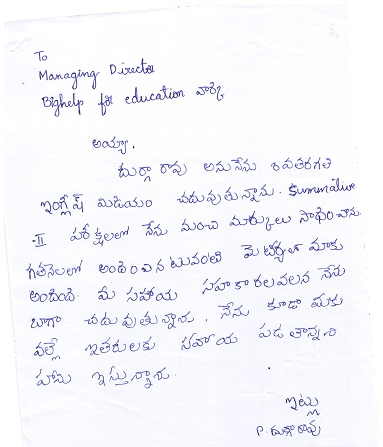 To
Managing Director
Bighelp for education వార్క
అయ్యా,
దుర్గా రావు అనునేను 8 వతరగతి
ఇంగ్లీష్ మీడియం చదువుతున్నాను. Summative
-II పరీక్షలలో నేను మంచి మార్కులు సాధించాను.
గతనెలలో అందించినటువంటి మెటీరియల్ మాకు
అందింది. మీ సహాయ సహకారలవలన నేను
బాగా చదువుతున్నాను. నేను కూడా మీకు
వల్లే ఇతరులకు సహాయ పడతానని
హామి ఇస్తున్నాను.
ఇట్లు
P. దుర్గారావు